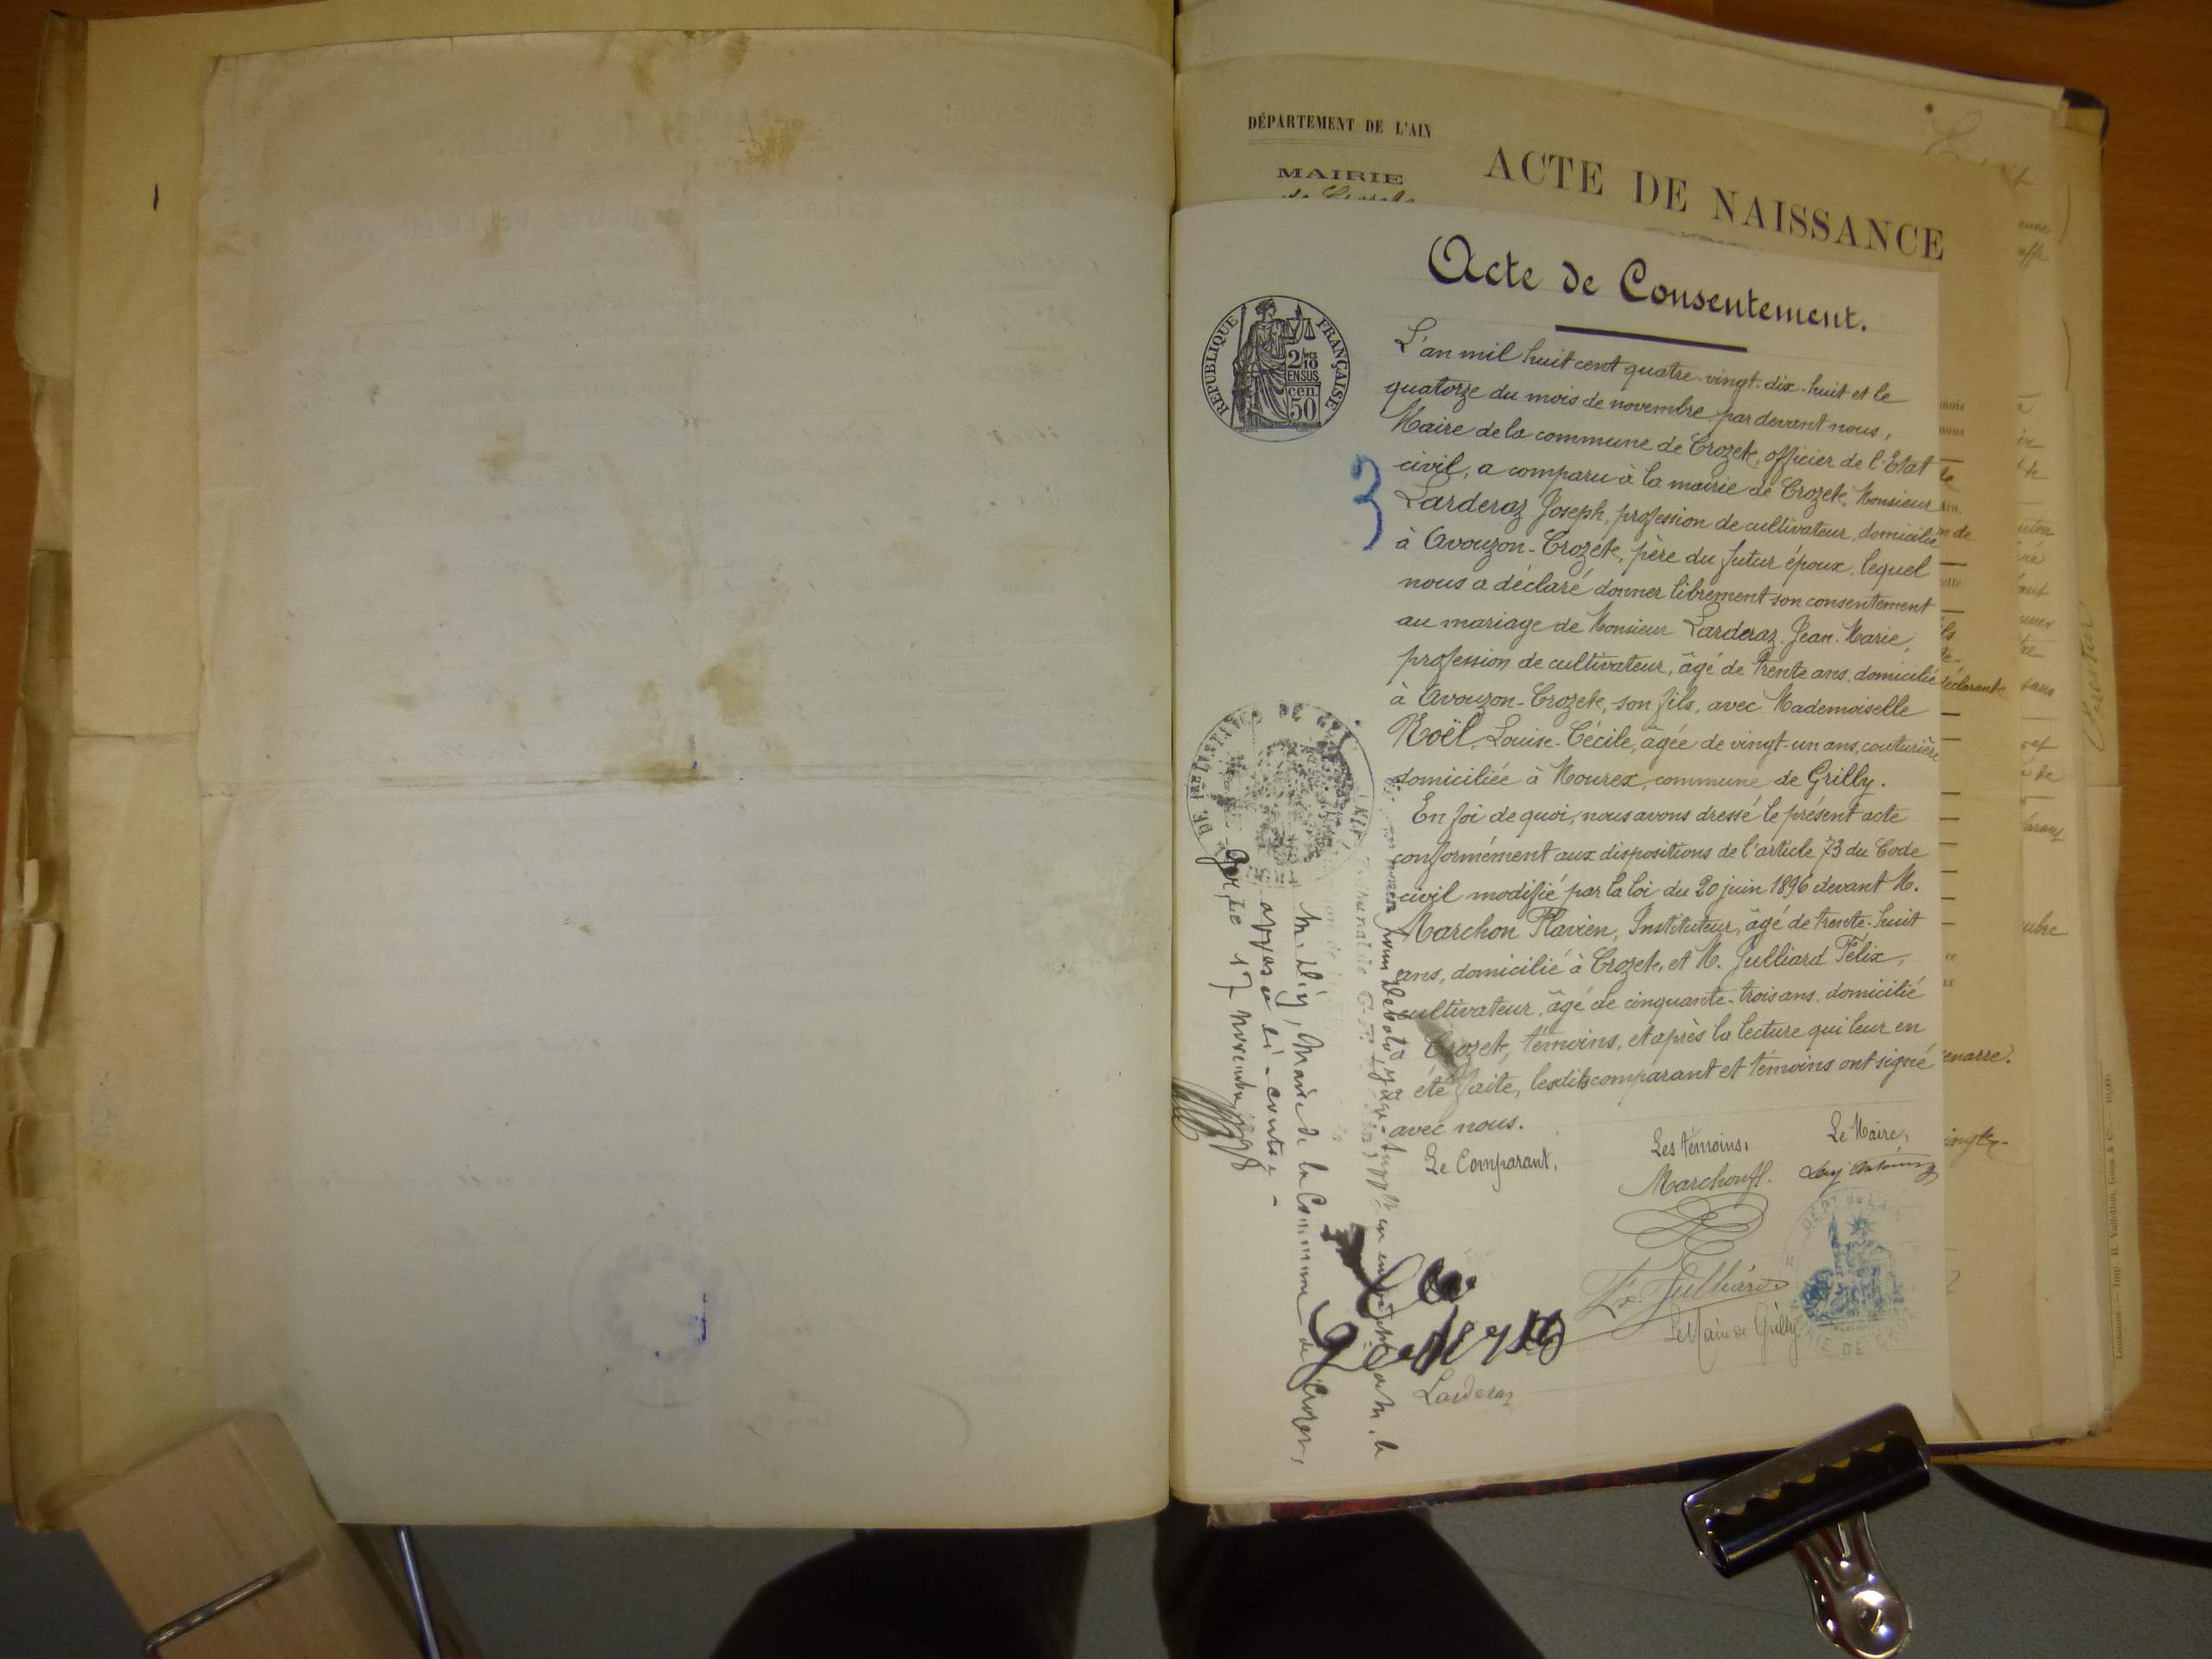 DÉPARTEMENT DE L'AIN
MAIRIE
ACTE DE NAISSANCE
Acte de Consentement.
RÉPUBLIQUE FRANÇAISE
2/10
EN SUS
cen
50
3
L'an mil huit cent quatre-vingt-dix-huit et le
quatorze du mois de novembre par devant nous,
Maire de la commune de Crozet, officier de l'Etat
civil, a comparu à la mairie de Crozet, Monsieur
Larderaz Joseph, profession de cultivateur, domicilié
à Avouzon-Crozet, père du futur époux, lequel
nous a déclaré donner librement son consentement
au mariage de Monsieur Larderaz Jean-Marie,
profession de cultivateur, âgé de trente ans, domicilié
à Avouzon-Crozet, son fils, avec Mademoiselle
Noël, Louise-Cécile, âgée de vingt-un ans, couturière
domiciliée à Mourex, commune de Grilly.
En foi de quoi, nous avons dressé le présent acte
conformément aux dispositions de l'article 73 du Code
civil modifié par la loi du 20 juin 1896 devant M.
Marchon Flavien, Instituteur, âgé de trente-huit
ans, domicilié à Crozet, et M. Julliard Félix,
cultivateur, âgé de cinquante-trois ans, domicilié
Crozet, témoins, et après la lecture qui leur en
été faite, lesdits comparant et témoins ont signé
avec nous.
Le Comparant,
Les témoins,
Le Maire,
Marchon fl.
Fx Julliard
Le Maire de Grilly
Larderaz
pour
le
Maire de la Commune de Crozet,
apposée ci-contre -
Gex, le 17 novembre